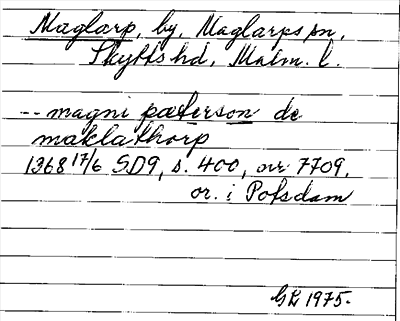 Maglarp, by, Maglarps sn,
Skytts hd, Malm. l.
-- magni pæterson de
maklathorp
1368 17/6 SD9, s. 400, nr 7709,
or. i Potsdam
GL 1975.